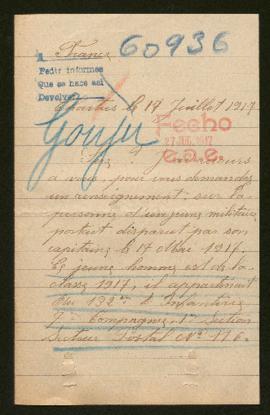 France
60936
Pedir informes
Que se hace asi
Devolver
le 17 Juillet 1917
Goujer
Fecho
27 JUL. 1917
e.o.e.
a vous pour vous demander
un renseignement sur la
personne d'un jeune militaire
portait disparut par son
capitaine le 17 Mai 1917.
Ce jeune homme est de la
classe 1917, il appartenait
au 132me d'Infanterie
7e Compagnie 1re Section
Secteur Postal No 116.